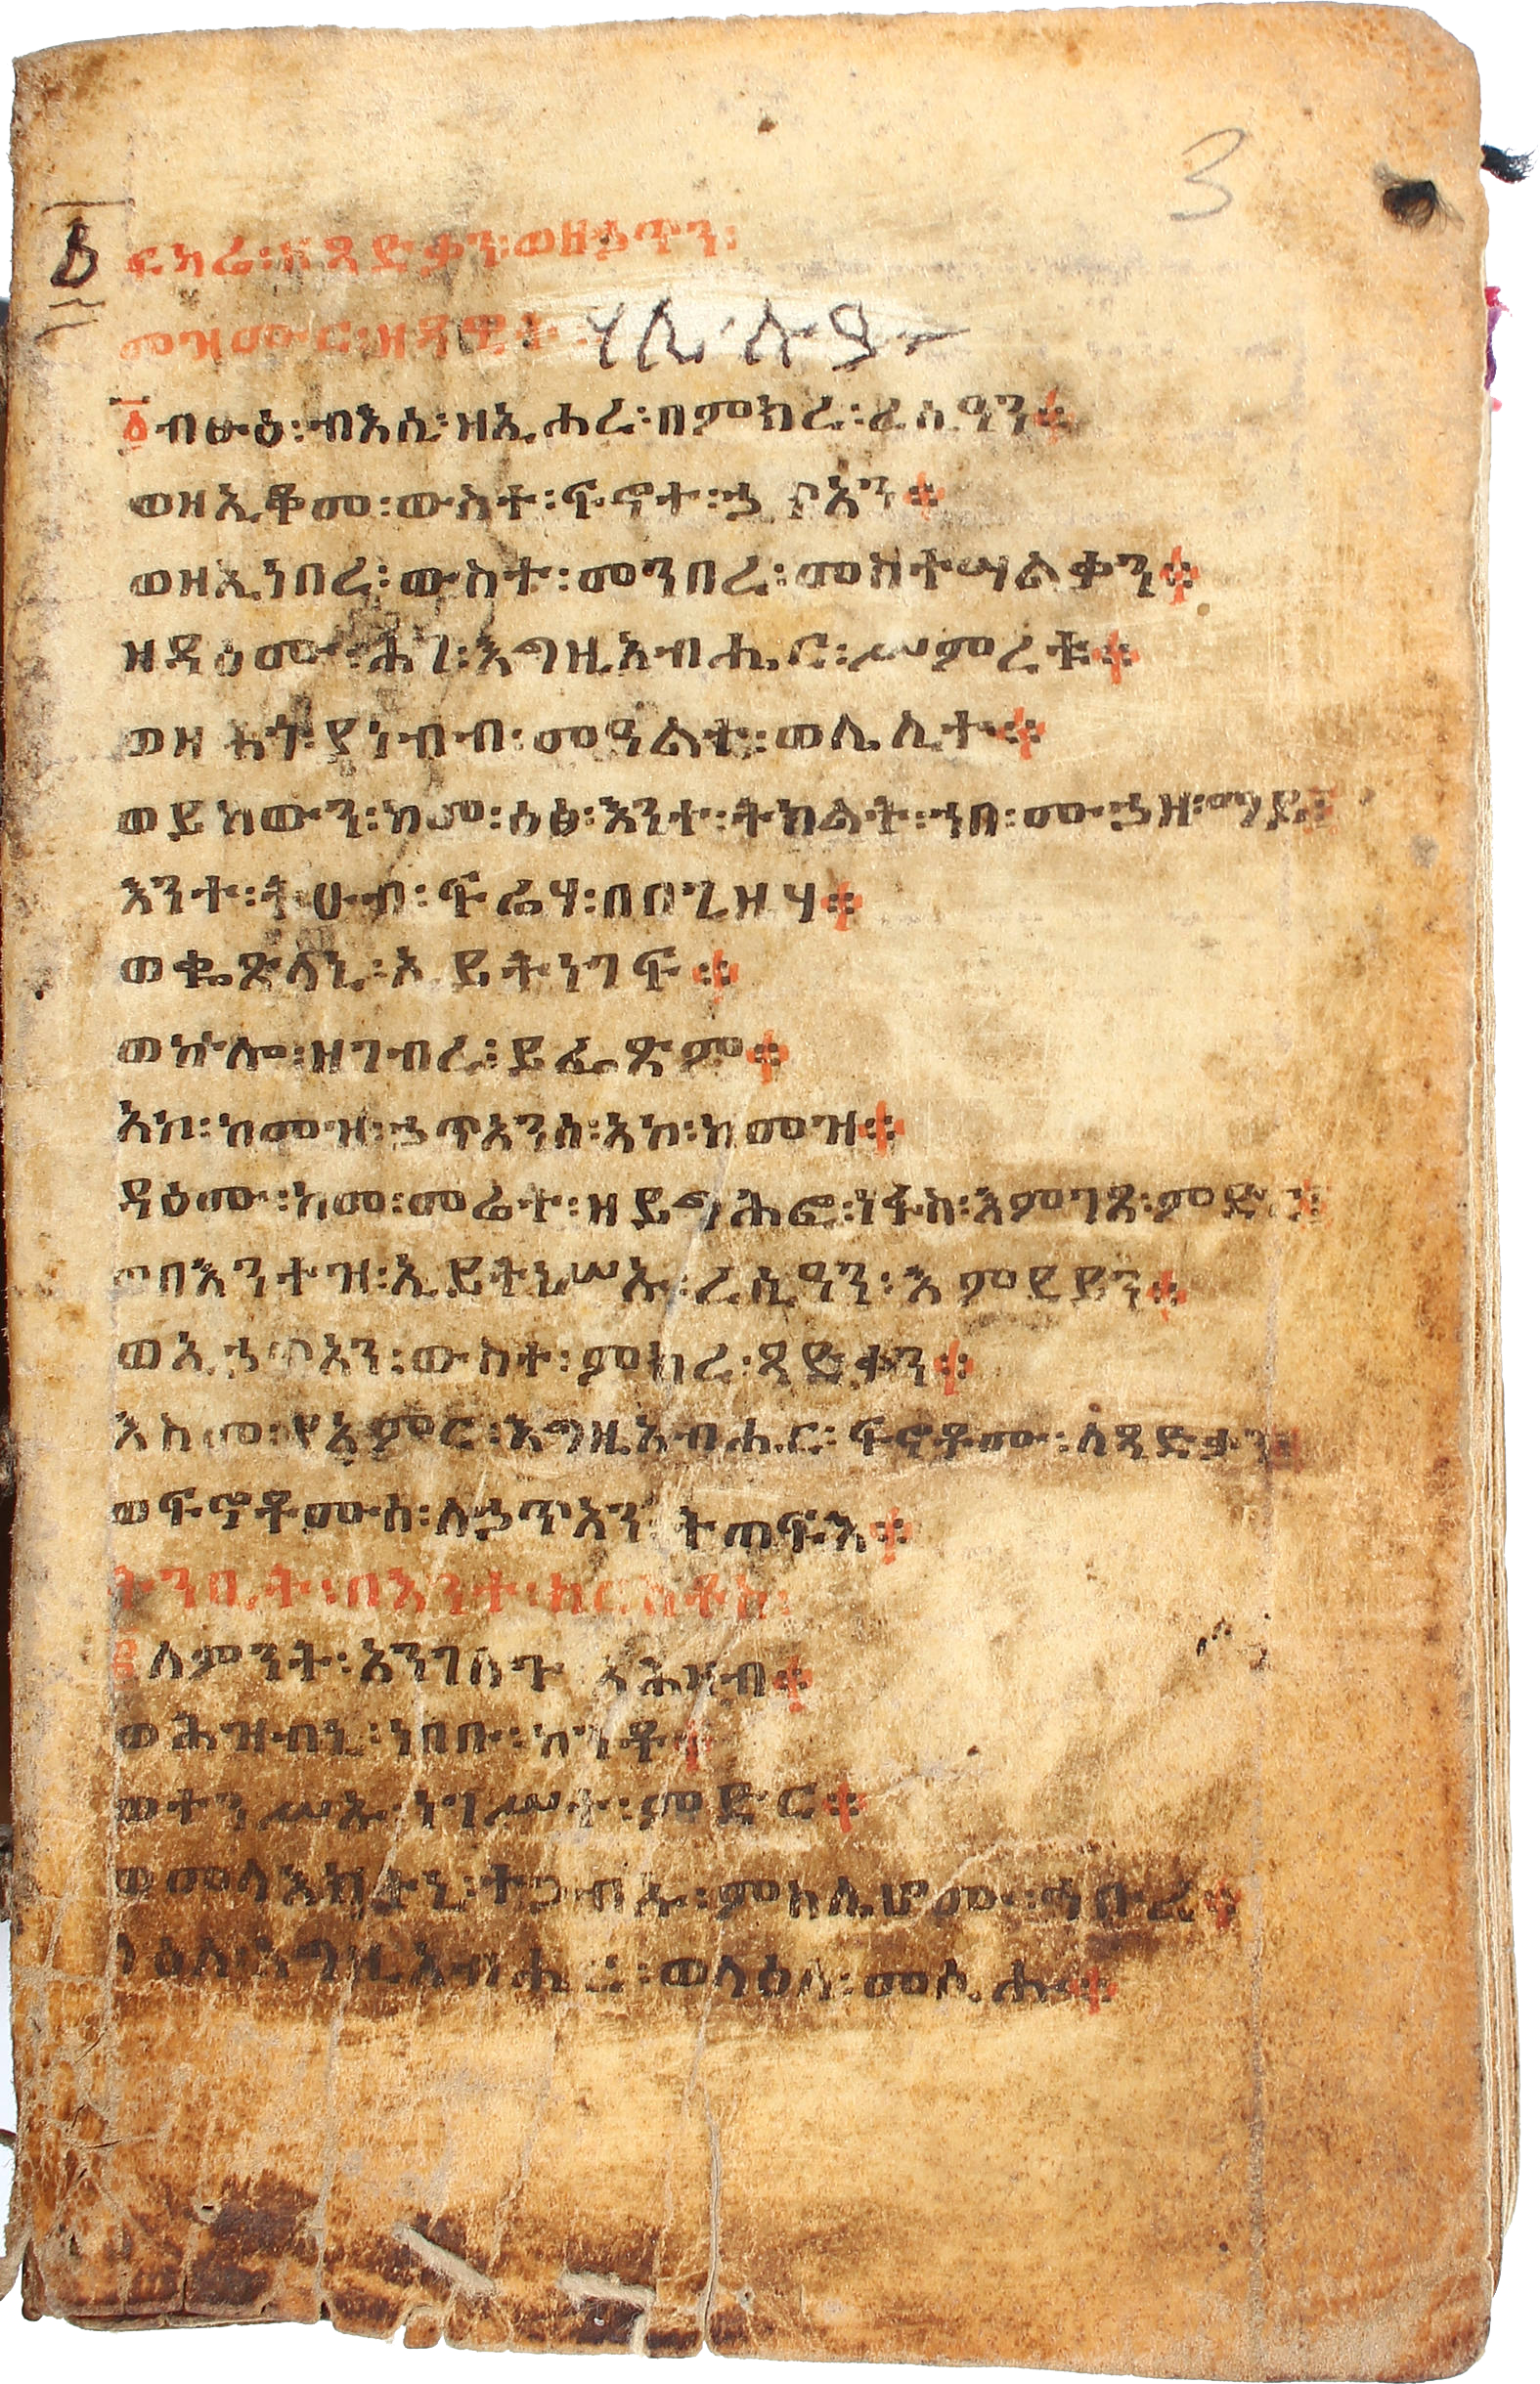 3
ፍካሬ፡ ዘጻድቃን፡ ወዘኃጥን፡
መዝሙር፡ ዘዳዊት፡ ሃሌ ሉያ
፩ ብፁዕ፡ ብእሲ፡ ዘኢሖረ፡ በምክረ፡ ረሲዓን።
ወዘኢቆመ፡ ውስተ፡ ፍኖተ፡ ኃጥአን።
ወዘኢነበረ፡ ውስተ፡ መንበረ፡ መስተሣልቃን።
ዘዳዕሙ፡ ሕገ፡ እግዚአብሔር፡ ሥምረቱ።
ወዘ ሕጎ፡ ያነብብ፡ መዓልተ፡ ወሌሊተ።
ወይከውን፡ ከመ፡ ዕፅ፡ እንተ፡ ትክልት፡ ኀበ፡ ሙኃዘ፡ ማይ።
እንተ፡ ትሁብ፡ ፍሬሃ፡ በበጊዜሃ።
ወቈጽላኒ፡ ኢይትነገፍ።
ወኵሎ፡ ዘገብረ፡ ይፌጽም።
አኮ፡ ከመዝ፡ ኃጥአንሰ፡ አኮ፡ ከመዝ።
ዳዕሙ፡ ከመ፡ መሬተ፡ ዘይግሕፎ፡ ነፋስ፡ እምገጸ፡ ምድር።
ወበእንተዝ፡ ኢይትነሥኡ፡ ረሲዓን፡ እምደይን።
ወኢኃጥአን፡ ውስተ፡ ምክረ፡ ጻድቃን።
እስመ፡ ያአምር፡ እግዚአብሔር፡ ፍኖቶሙ፡ ለጻድቃን።
ወፍኖቶሙሰ፡ ለኃጥአን፡ ትጠፍእ።
ትንቢት፡ በእንተ፡ ክርስቶስ፡
፪ ለምንት፡ አንገለጉ አሕዛብ።
ወሕዝብኒ፡ ነበቡ፡ ከንቶ።
ወተንሥኡ፡ ነገሥተ፡ ምድር።
ወመላእክትኒ፡ ተጋብኡ፡ ምስሌሆሙ፡ ኅቡረ።
ላዕለ፡ እግዚአብሔር፡ ወላዕለ፡ መሲሑ።